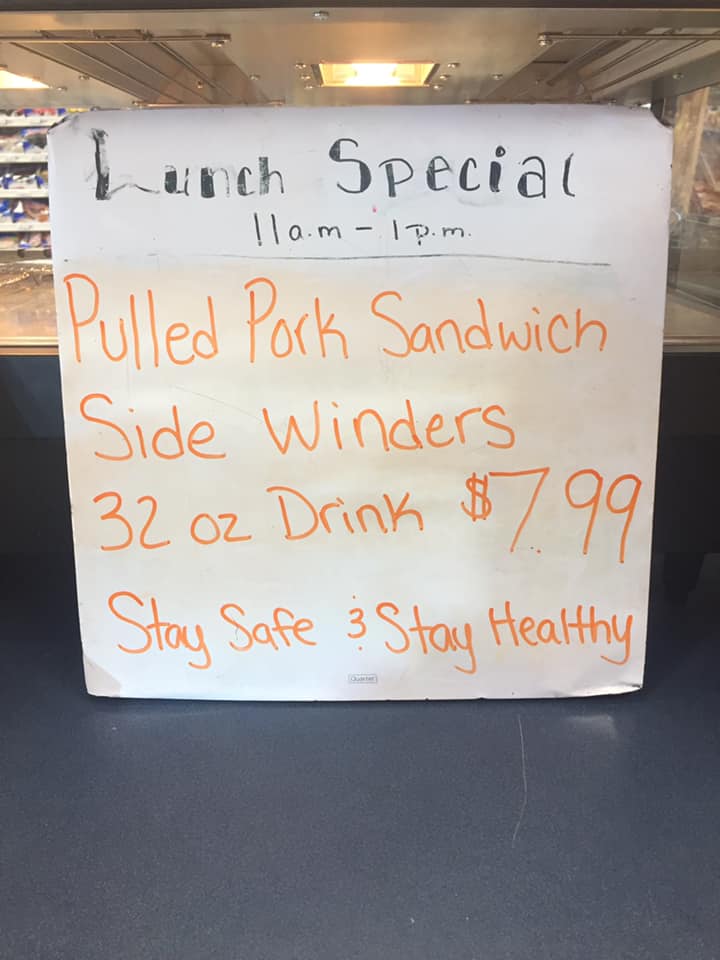 Lunch Special
11a.m - 1p.m.
Pulled Pork Sandwich
Side Winders
32 oz Drink $7.99
Stay Safe & Stay Healthy
Quartet